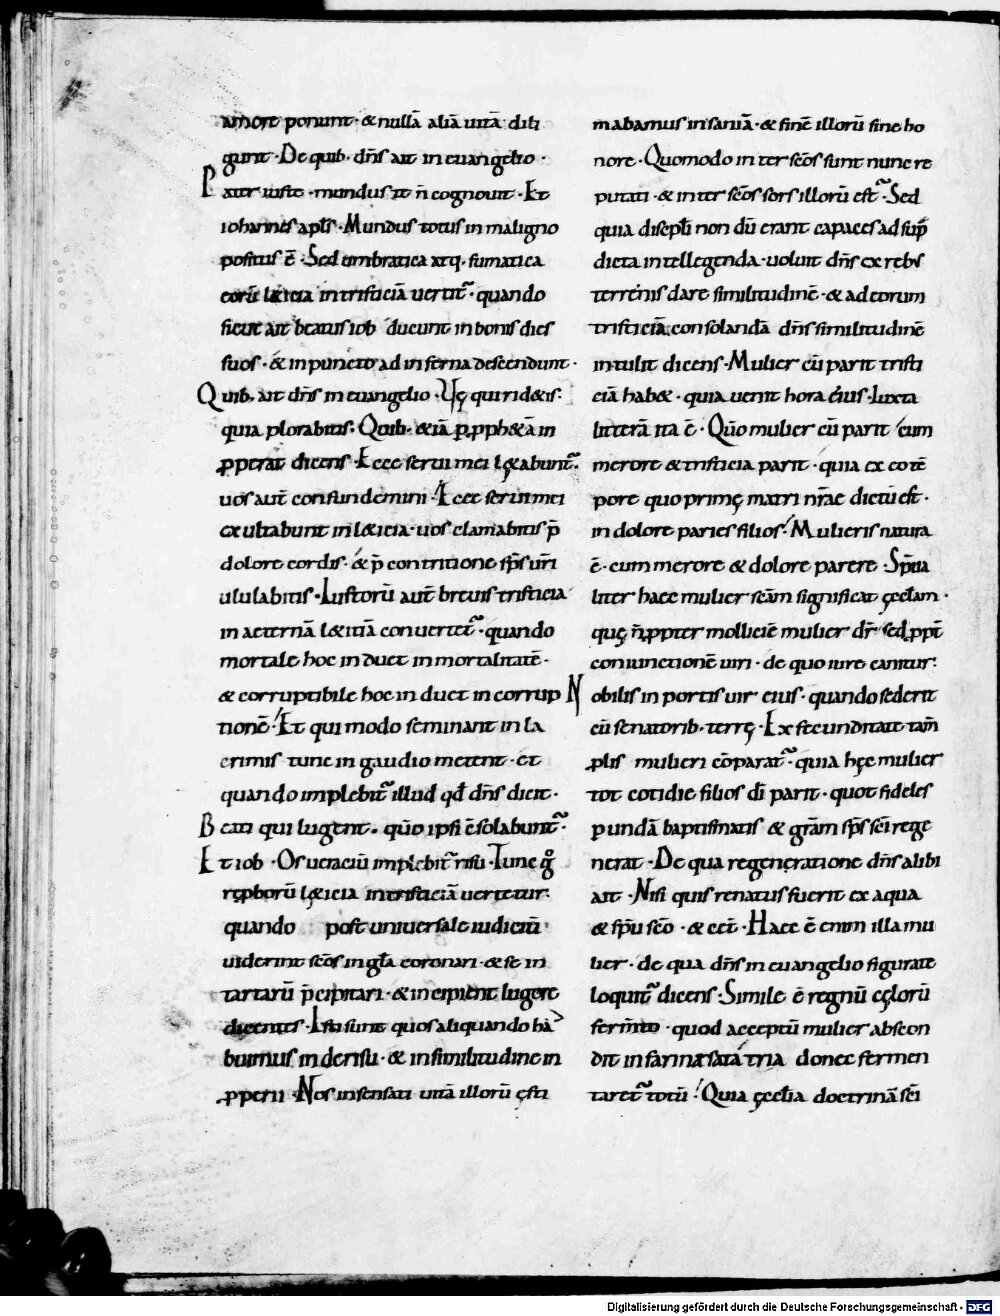 amore ponunt · & nullā aliā uitā dili
gunt · De quib · dn̄s ait in euangelio ·
Pater iuste · mundus te n̄ cognouit · Et
iohannes apl̄s · Mundus totus in maligno
positus ē · Sed umbratica atq · fumatica
eorū l&icia in tristiciā uertit᷑ · quando
sicut ait beatus iob ducunt in bonis dies
suos · & in puncto ad inferna descendunt ·
Quib · ait dn̄s in euangelio · Vę qui rid&is :
quia plorabitis : Quib · &iā ꝓ ꝓph&ā in
ꝓperat dicens · Ecce serui mei lęabunt᷑ ·
uos aut̄ confundemini · Ecce serui mei
exultabunt in l&icia · uos clamabitis p̄
dolore cordis · & p̄ contritione sp̄s ur̄i
ululabitis · Iustorū aut̄ breuis tristicia
in aeternā l&itiā conuertet᷑ · quando
mortale hoc induet inmortalitatē ·
& corruptibile hoc induet incorrup
tionē · Et qui modo seminant in la
crimis tunc in gaudio metent · et
quando implebit᷑ illud qd̄ dn̄s dicit ·
Beati qui lugent · qūo ipsi c̄solabunt᷑ ·
Et iob · Os ueraciū implebit᷑ risu · Tunc g̊
ręproborū l&icia in tristiciā uertetur :
quando post uniuersale iudiciū
uiderint sc̄os in gl̄a coronari · & se in
tartarū p̄cipitari · & incipient lugere
dicentes · Isti sunt quos aliquando ha
buimus in derisu · & in similitudine in
ꝓperii · Nos insensati uitā illorū ęsti
mabamus insaniā · & finē illorū sine ho
nore · Quomodo inter sc̄os sunt nunc re
putati · & inter sc̄os sors illorū est᷑ · Sed
quia discipl̄i non dū erant capaces ad sup̄
dicta intellegenda · uoluit dn̄s ex rebs
terrenis dare similitudinē · & ad eorum
tristiciā consolandā dn̄s similitudinē
intulit dicens · Mulier cū parit tristi
ciā hab& · quia uenit hora eius · Iuxta
litterā ita ē · Qūo mulier cū parit cum
merore & tristicia parit · quia ex eo tē
pore quo primę matri nr̄ae dictū est ·
in dolore paries filios · Mulieris natura
ē · cum merore & dolore parere · Sp̄ita
liter haec mulier sc̄am significat ęcl̄am ·
quę n̄ ꝓpter molliciē mulier dr̄ sed ꝓpt̄
coniunctionē uiri · de quo iure canitur :
Nobilis in portis uir eius · quando sederit
cū senatorib · terrę · Ex fecunditate tam̄
ꝓlis mulieri cōparat᷑ · quia hęc mulier
tot cotidie filios dī parit · quot fideles
p undā baptismatis & gr̄am sp̄s sc̄i rege
nerat · De qua regeneratione dn̄s alibi
ait · Nisi quis renatus fuerit ex aqua
& sp̄u sc̄o · & cet̄ · Haec ē enim illa mu
lier · de qua dn̄s in euangelio figurate
loquit᷑ dicens : Simile ē regnū cęlorū
ferm̄to · quod acceptū mulier abscon
dit in farinae sata tria donec fermen
taret᷑ totū · Quia ęcclia doctrinā sc̄i
Digitalisierung gefördert durch die Deutsche Forschungsgemeinschaft - DFG